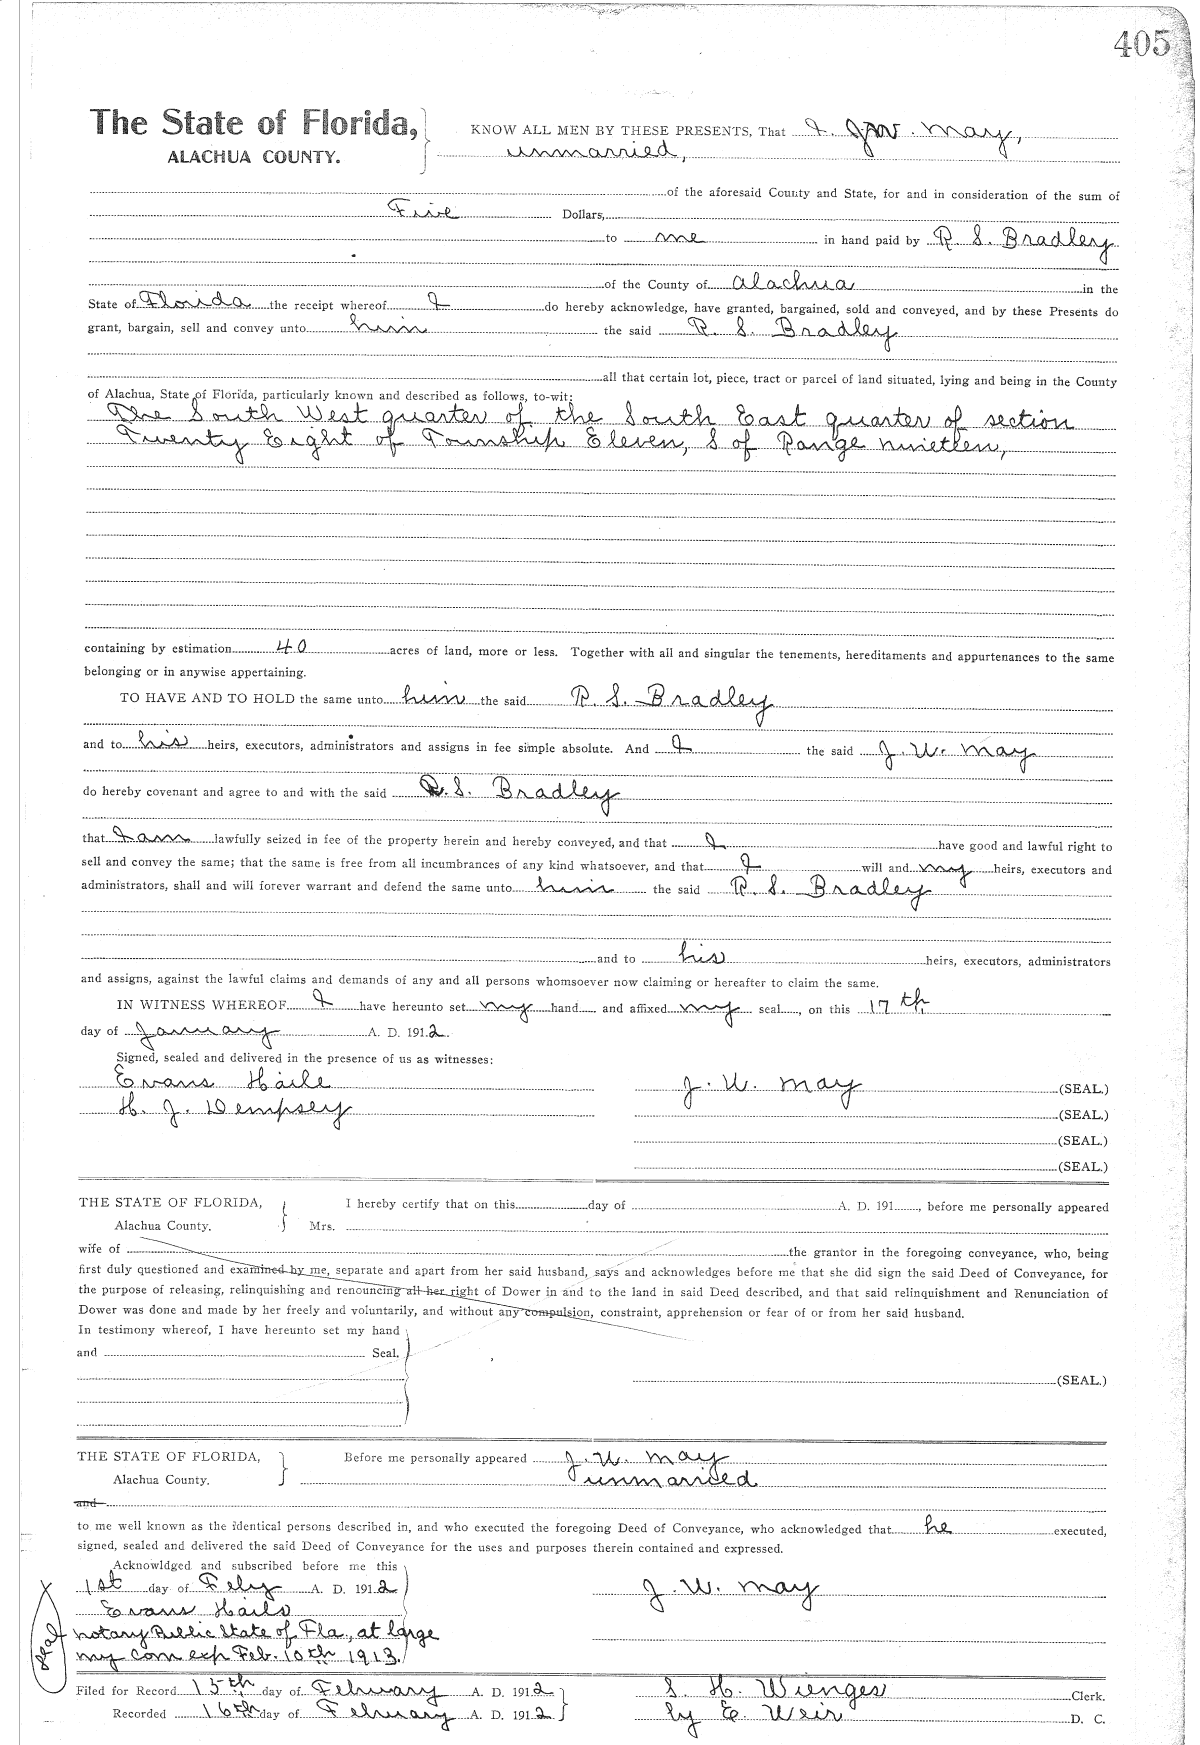 405
The State of Florida,
ALACHUA COUNTY.
KNOW ALL MEN BY THESE PRESENTS, That I J.W. May,
unmarried,
of the aforesaid County and State, for and in consideration of the sum of
Five Dollars,
to me in hand paid by R. S. Bradley
of the County of Alachua in the
State of Florida the receipt whereof I do hereby acknowledge, have granted, bargained, sold and conveyed, and by these Presents do
grant, bargain, sell and convey unto him the said R. S. Bradley
all that certain lot, piece, tract or parcel of land situated, lying and being in the County
of Alachua, State of Florida, particularly known and described as follows, to-wit:
The South West quarter of the South East quarter of section
Twenty Eight of Township Eleven, S of Range nineteen,
containing by estimation 40 acres of land, more or less. Together with all and singular the tenements, hereditaments and appurtenances to the same
belonging or in anywise appertaining.
TO HAVE AND TO HOLD the same unto him the said R. S. Bradley
and to his heirs, executors, administrators and assigns in fee simple absolute. And I the said J. W. May
do hereby covenant and agree to and with the said R. S. Bradley
that I am lawfully seized in fee of the property herein and hereby conveyed, and that I have good and lawful right to
sell and convey the same; that the same is free from all incumbrances of any kind whatsoever, and that I will and my heirs, executors and
administrators, shall and will forever warrant and defend the same unto him the said R. S. Bradley
and to his heirs, executors, administrators
and assigns, against the lawful claims and demands of any and all persons whomsoever now claiming or hereafter to claim the same.
IN WITNESS WHEREOF I have hereunto set my hand and affixed my seal, on this 17th
day of January A. D. 1912.
Signed, sealed and delivered in the presence of us as witnesses:
Evans Haile J. W. May (SEAL.)
H. J. Dempsey (SEAL.)
(SEAL.)
(SEAL.)
THE STATE OF FLORIDA, I hereby certify that on this day of A. D. 191, before me personally appeared
Alachua County. Mrs.
wife of the grantor in the foregoing conveyance, who, being
first duly questioned and examined by me, separate and apart from her said husband, says and acknowledges before me that she did sign the said Deed of Conveyance, for
the purpose of releasing, relinquishing and renouncing all her right of Dower in and to the land in said Deed described, and that said relinquishment and Renunciation of
Dower was done and made by her freely and voluntarily, and without any compulsion, constraint, apprehension or fear of or from her said husband.
In testimony whereof, I have hereunto set my hand
and Seal.
(SEAL.)
THE STATE OF FLORIDA, Before me personally appeared J. W. May
Alachua County. unmarried
and
to me well known as the identical persons described in, and who executed the foregoing Deed of Conveyance, who acknowledged that he executed,
signed, sealed and delivered the said Deed of Conveyance for the uses and purposes therein contained and expressed.
Acknowldged and subscribed before me this
1st day of Feby A. D. 1912 J. W. May
Evans Haile
Notary Public State of Fla., at large
my com exp Feb. 10th 1913.
Seal
Filed for Record 15th day of February A. D. 1912 S. H. Wienges Clerk.
Recorded 16th day of February A. D. 1912 by E. Weir D. C.